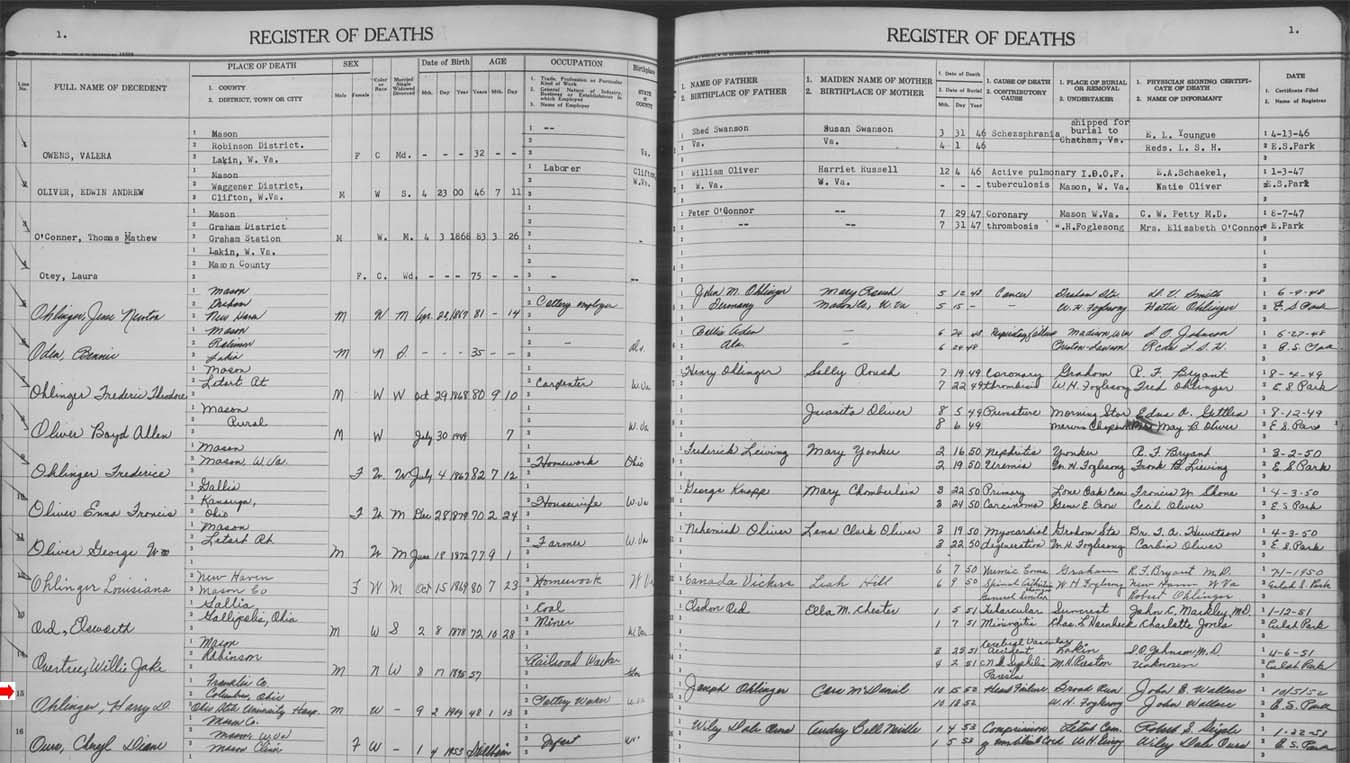 1.
REGISTER OF DEATHS
REGISTER OF DEATHS
1.
Line No.
FULL NAME OF DECEDENT
PLACE OF DEATH
1. COUNTY
2. DISTRICT, TOWN OR CITY
SEX
Male Female
Color or Race
Married Single Widowed Divorced
Date of Birth
Mth. Day Year
AGE
Years Mth. Days
OCCUPATION
1. Trade, Profession or Particular Kind of Work
2. General Nature of Industry, Business or Establishment in which Employed
3. Name of Employer
Birthplace
STATE or COUNTY
1. NAME OF FATHER
2. BIRTHPLACE OF FATHER
1. MAIDEN NAME OF MOTHER
2. BIRTHPLACE OF MOTHER
1. Date of Death
2. Date of Burial
Mth. Day Year
1. CAUSE OF DEATH
2. CONTRIBUTORY CAUSE
1. PLACE OF BURIAL OR REMOVAL
2. UNDERTAKER
1. PHYSICIAN SIGNING CERTIFICATE OF DEATH
2. NAME OF INFORMANT
DATE
1. Certificate Filed
2. Name of Registrar
OWENS, VALERA
Mason
Robinson District.
Lakin, W. Va.
F C Md. - - - 32 - -
--
Va.
Shed Swanson
Va.
Susan Swanson
Va.
3 31 46
4 1 46
Schezsphrania
shipped for burial to Chatham, Va.
E. L. Youngue
Reds. L. S. H.
4-13-46
E.S.Park
OLIVER, EDWIN ANDREW
Mason
Waggener District,
Clifton, W.Va.
M W S. 4 23 00 46 7 11
Laborer
Clifton W.Va.
William Oliver
W. Va.
Harriet Russell
W. Va.
12 4 46
- - -
Active pulmonary
tuberculosis
I.O.O.F.
Mason, W. Va.
E.A.Schaekel,
Katie Oliver
1-3-47
E.S.Park
O'Conner, Thomas Mathew
Mason
Graham District
Graham Station
M W. M. 4 3 1868 83 3 26
Peter O'Gonnor
--
--
--
7 29 47
7 31 47
Coronary
thrombosis
Mason W.Va.
W.H.Foglesong
C. W. Petty M.D.
Mrs. Elizabeth O'Connor
8-7-47
E.Park
Otey, Laura
Lakin, W. Va.
Mason County
F. C. Wd. - - - 75 - -
-
--
Ohlinger, Jesse Newton
Mason
Graham
New Haven
M W M Apr. 28, 1867 81 - 14
John M. Ohlinger
Germany
Mary Roush
Mason Co, W. Va
5 12 48
5 15 -
Cancer
Graham Sta.
W. H. Foglesong
Hattie Ohlinger
6-9-48
E. S. Park
Oden, Bennie
Mason
Robinson
Lakin
M - - - 35 - -
Ala.
Ala.
6 24 48
6 26 48
S. O. Johnson
6-27-48
Ohlinger Frederic Theodore
Mason
Letart
M W W Oct 29 1868 80 9 10
Carpenter
W. Va
Henry Ohlinger
Sally Roush
7 19 49
7 22 49
Coronary
thrombosis
Graham
W. H. Foglesong
R. F. Bryant
Fred Ohlinger
8-4-49
E S Park
Oliver Boyd Allen
Mason
Rural
M W July 30 1949 7
W. Va
Juanita Oliver
8 5 49
8 6 49
Premature
Morning Star
May B. Oliver
8-12-49
E S. Park
Ohlinger Frederice
Mason
Mason, W. Va.
F W W July 4 1867 82 7 12
Homework
Ohio
Frederick Lieving
Mary Yonker
2 16 50
2 19 50
Nephritis
Uremia
Yonker
W. H. Foglesong
R. F. Bryant
Frank B. Lieving
3-2-50
E. S Park
Oliver Enna Francis
Gallia
Kanauga,
Ohio
F W M Dec 28 1879 70 2 24
Housewife
W. Va
George Knapp
Mary Chamberlain
3 22 50
3 24 50
Primary
Carcinoma
Lone Oak Cem
Gene E. Crow
Francis W. Shane
Cecil Oliver
4-3-50
E S Park
Oliver George Wm
Mason
Letart
M W M June 18 1872 77 9 1
Farmer
W. Va
Nehemiah Oliver
Lana Clark Oliver
3 19 50
3 22 50
Myocardial
degeneration
Graham Sta
W. H. Foglesong
Corbin Oliver
4-3-50
E S Park
Ohlinger Louisiana
New Haven
Mason Co
F W M Oct 15 1869 80 7 23
Homework
Canada Vickers
Leah Hill
6 7 50
6 9 50
Graham
W. H. Foglesong
R. F. Bryant M.D.
New Haven W Va
Robert Ohlinger
Ord, Elsworth
Gallia
Gallipolis, Ohio
M W S 2 8 1878 72 10 28
Coal
Miner
Ella M. Chester
1 5 51
1 7 51
Tubercular
Miningitis
Suncrest
Charlotte Jones
1-12-51
Eulah Park
Overtree, Willie Jake
Mason
Robinson
M N W 8 17 1895 57
Railroad Worker
3 25 51
4 2 51
Cerebral Vascular
Accident
Paresis
Lakin
S.O. Johnson, M.D
Unknown
4-6-51
Eulah Park
15
Ohlinger, Harry D.
Franklin Co.
Columbus, Ohio
Ohio State University Hosp.
M W - 9 2 1904 48 1 13
Pottery Worker
Joseph Ohlinger
Cora McDaniel
10 15 52
10 18 52
Heart Failure
Broad Run
W. H. Foglesong
John B. Wallace
John Wallace
10/5/52
E. S. Park
16
Ours, Cheryl Diane
Mason Co.
Mason W.Va
Mason Clinic
F W - 1 4 1953 Stillborn
Infant
Wiley Dale Ours
Audrey Bell
1 4 53
1 5 53
Compression
of umbilical Cord
Letart Cem.
Wiley Dale Ours
1-22-53
E. S. Park